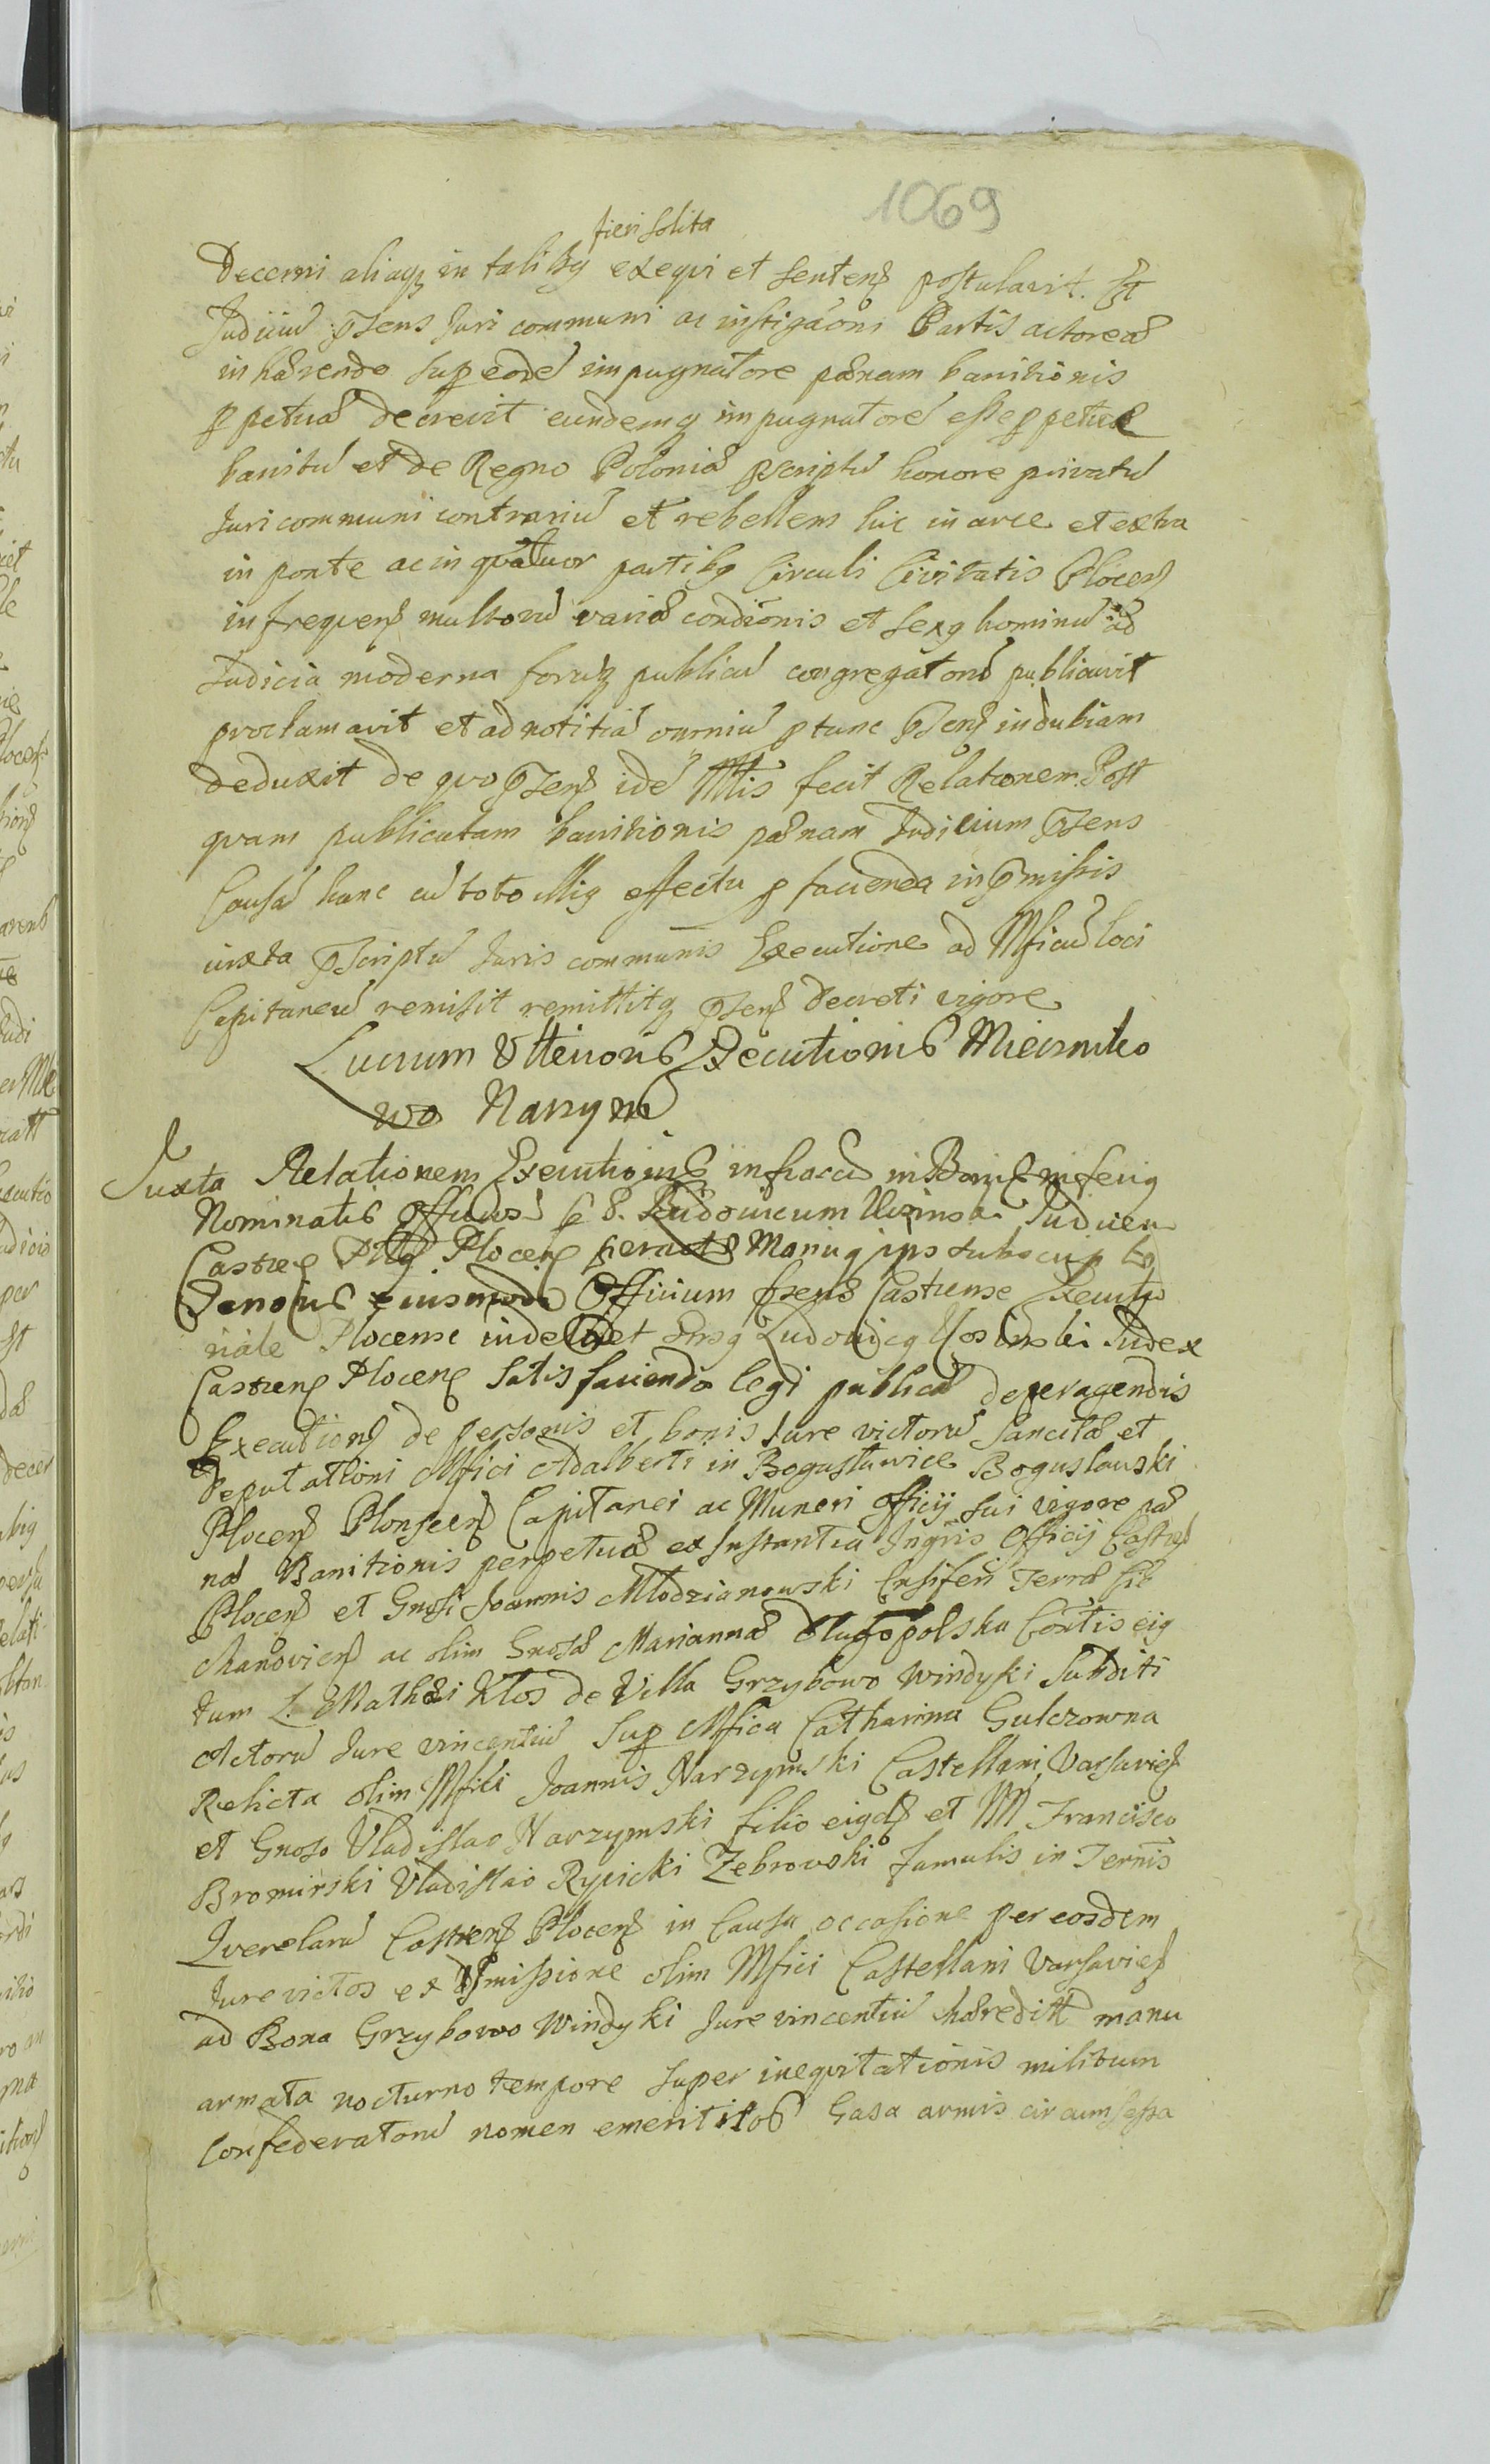 1069
fieri solita
Decerni aliaqz in talibq exeqvi et sentens postulavit. Et
Judiciu psens Juri communi ac instigaoni Partis actoreæ
inhærendo sup eode impugnatore pænam banitionis
ppetuæ decrevit eundemq impugnatore esse ppetue
banitu et de Regno Poloniæ pscriptu honore privatu
Juri communi contrariu et rebellem hic in arce et extra
in ponte ac in qvatuor partibq Circuli Civitatis Plocens
in freqvens multoru variæ condionis et sexq hominu ad
Judicia moderna forumqz publicu congregatoru publicavit
proclamavit et ad notitia omniu ptunc psens indubiam
deduxit de qvo psens ide Mtis fecit Relationem. Post
qvam publicatam banitionis pænam Judicium psens
Causa hanc cu toto illiq effectu p facienda in pmissis
iuxta pscriptu Juris communis Executione ad Mficu loci
Capitaneu remisit remittitq psens Decreti vigore
Lucrum Ulterioris Executionis
wo Narzym
Juxta Relationem Executionis infracta in Bonis inferiq
Nominatis Ludovicum Judicem
Castren Plocens peracta Manuq ips subscrip
Tenoris eiusmodi Officium psens Castrense Executo
riale Plocense Ludovicq Judex
Castrens Plocens Satisfaciendo legi publicæ de peragendis
Executions de personis et bonis Jure victoru Sancitæ et
Deputationi Mfici Adalberti in Bogusławice Bogusławski
Plocens Plonscens Capitanei ac Muneri officij sui vigore pæ
næ Banitionis perpetuæ ex Instantia Ingris Officij Castrs
Plocens et Gnosi Joannis Młodzianowski Ensiferi Terræ Cie
chanoviens ac olim Gnosæ Mariannæ Długopolska Contis eiq
tum L. Mathæi Kłos de Villa Grzybowo Windyki Subditi
Actoru Jure vincentiu Sup Mfica Catharina Gulczowna
Relicta olim Mfici Joannis Narzymski Castellani Varsaviens
et Gnoso Vladislao Narzymski filio eiqds et NN Francisco
Bromirski Vladislao Rypicki Zebrowski famulis in Terris
Qverelaru Castrens Plocens in Causa occasione per eosdem
Jure victos ex dismissione olim Mfici Castellani Varsaviens
ad Bona Grzybowo Windyki Jure vincentiu hæreditt manu
armata nocturno tempore super ineqvitationis militum
Confederatoru nomen Casa armis circumsepta